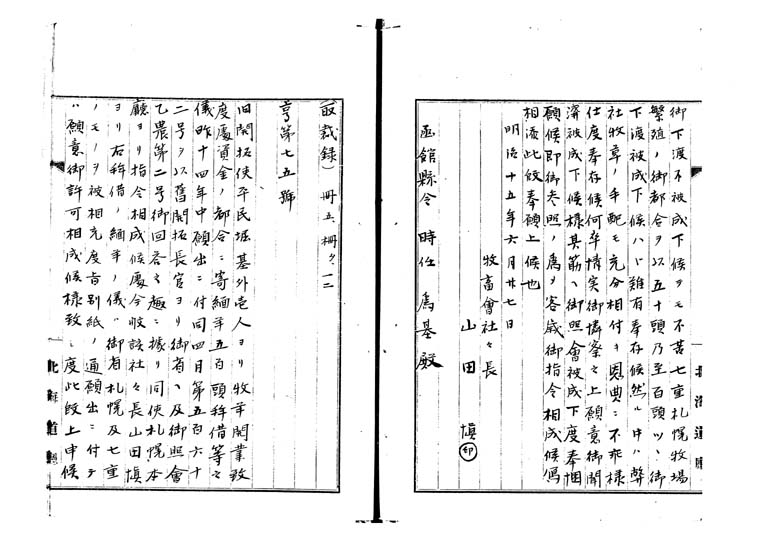 御下渡不被成下候ヲモ不苦七重札幌牧場
繁殖ノ御都合ヲ以五十頭乃至百頭ツヽ御
下渡被成下候ハヽ難有奉存候然ル中ハ弊
社牧草ノ手配モ充分相付キ恩典ニ不乖様
仕度奉存候何卒情実御憐察之上願意御聞
済被成下候様其筋ヘ御照會被成下度奉悃
願候即御参照ノ為ヲ客歳御指令相成候写
相添此段奉願上候也
明治十五年六月廿七日
牧畜會社々長
山田 慎 印
函館縣令 時任為基殿
北海道廳
(取裁録) 冊五、冊々一二
亨第七五號
旧開拓使平民堀基外壱人ヨリ牧羊開業致
度處資金ノ都合ニ寄緬羊五百頭拝借等之
儀昨十四年中願出ニ付同四月第五百六十
二号ヲ以舊開拓長官ヨリ御省ヘ及御照會
乙農第二号御回答之趣ニ據リ同使札幌本
廳ヨリ指令相成候處今般該社々長山田慎
ヨリ右拝借ノ緬羊ノ儀ハ御省札幌及七重
ノモノヲ被相充度旨別紙ノ通願出ニ付テ
ハ願意御許可相成候様致シ度此段上申候
北海道廳